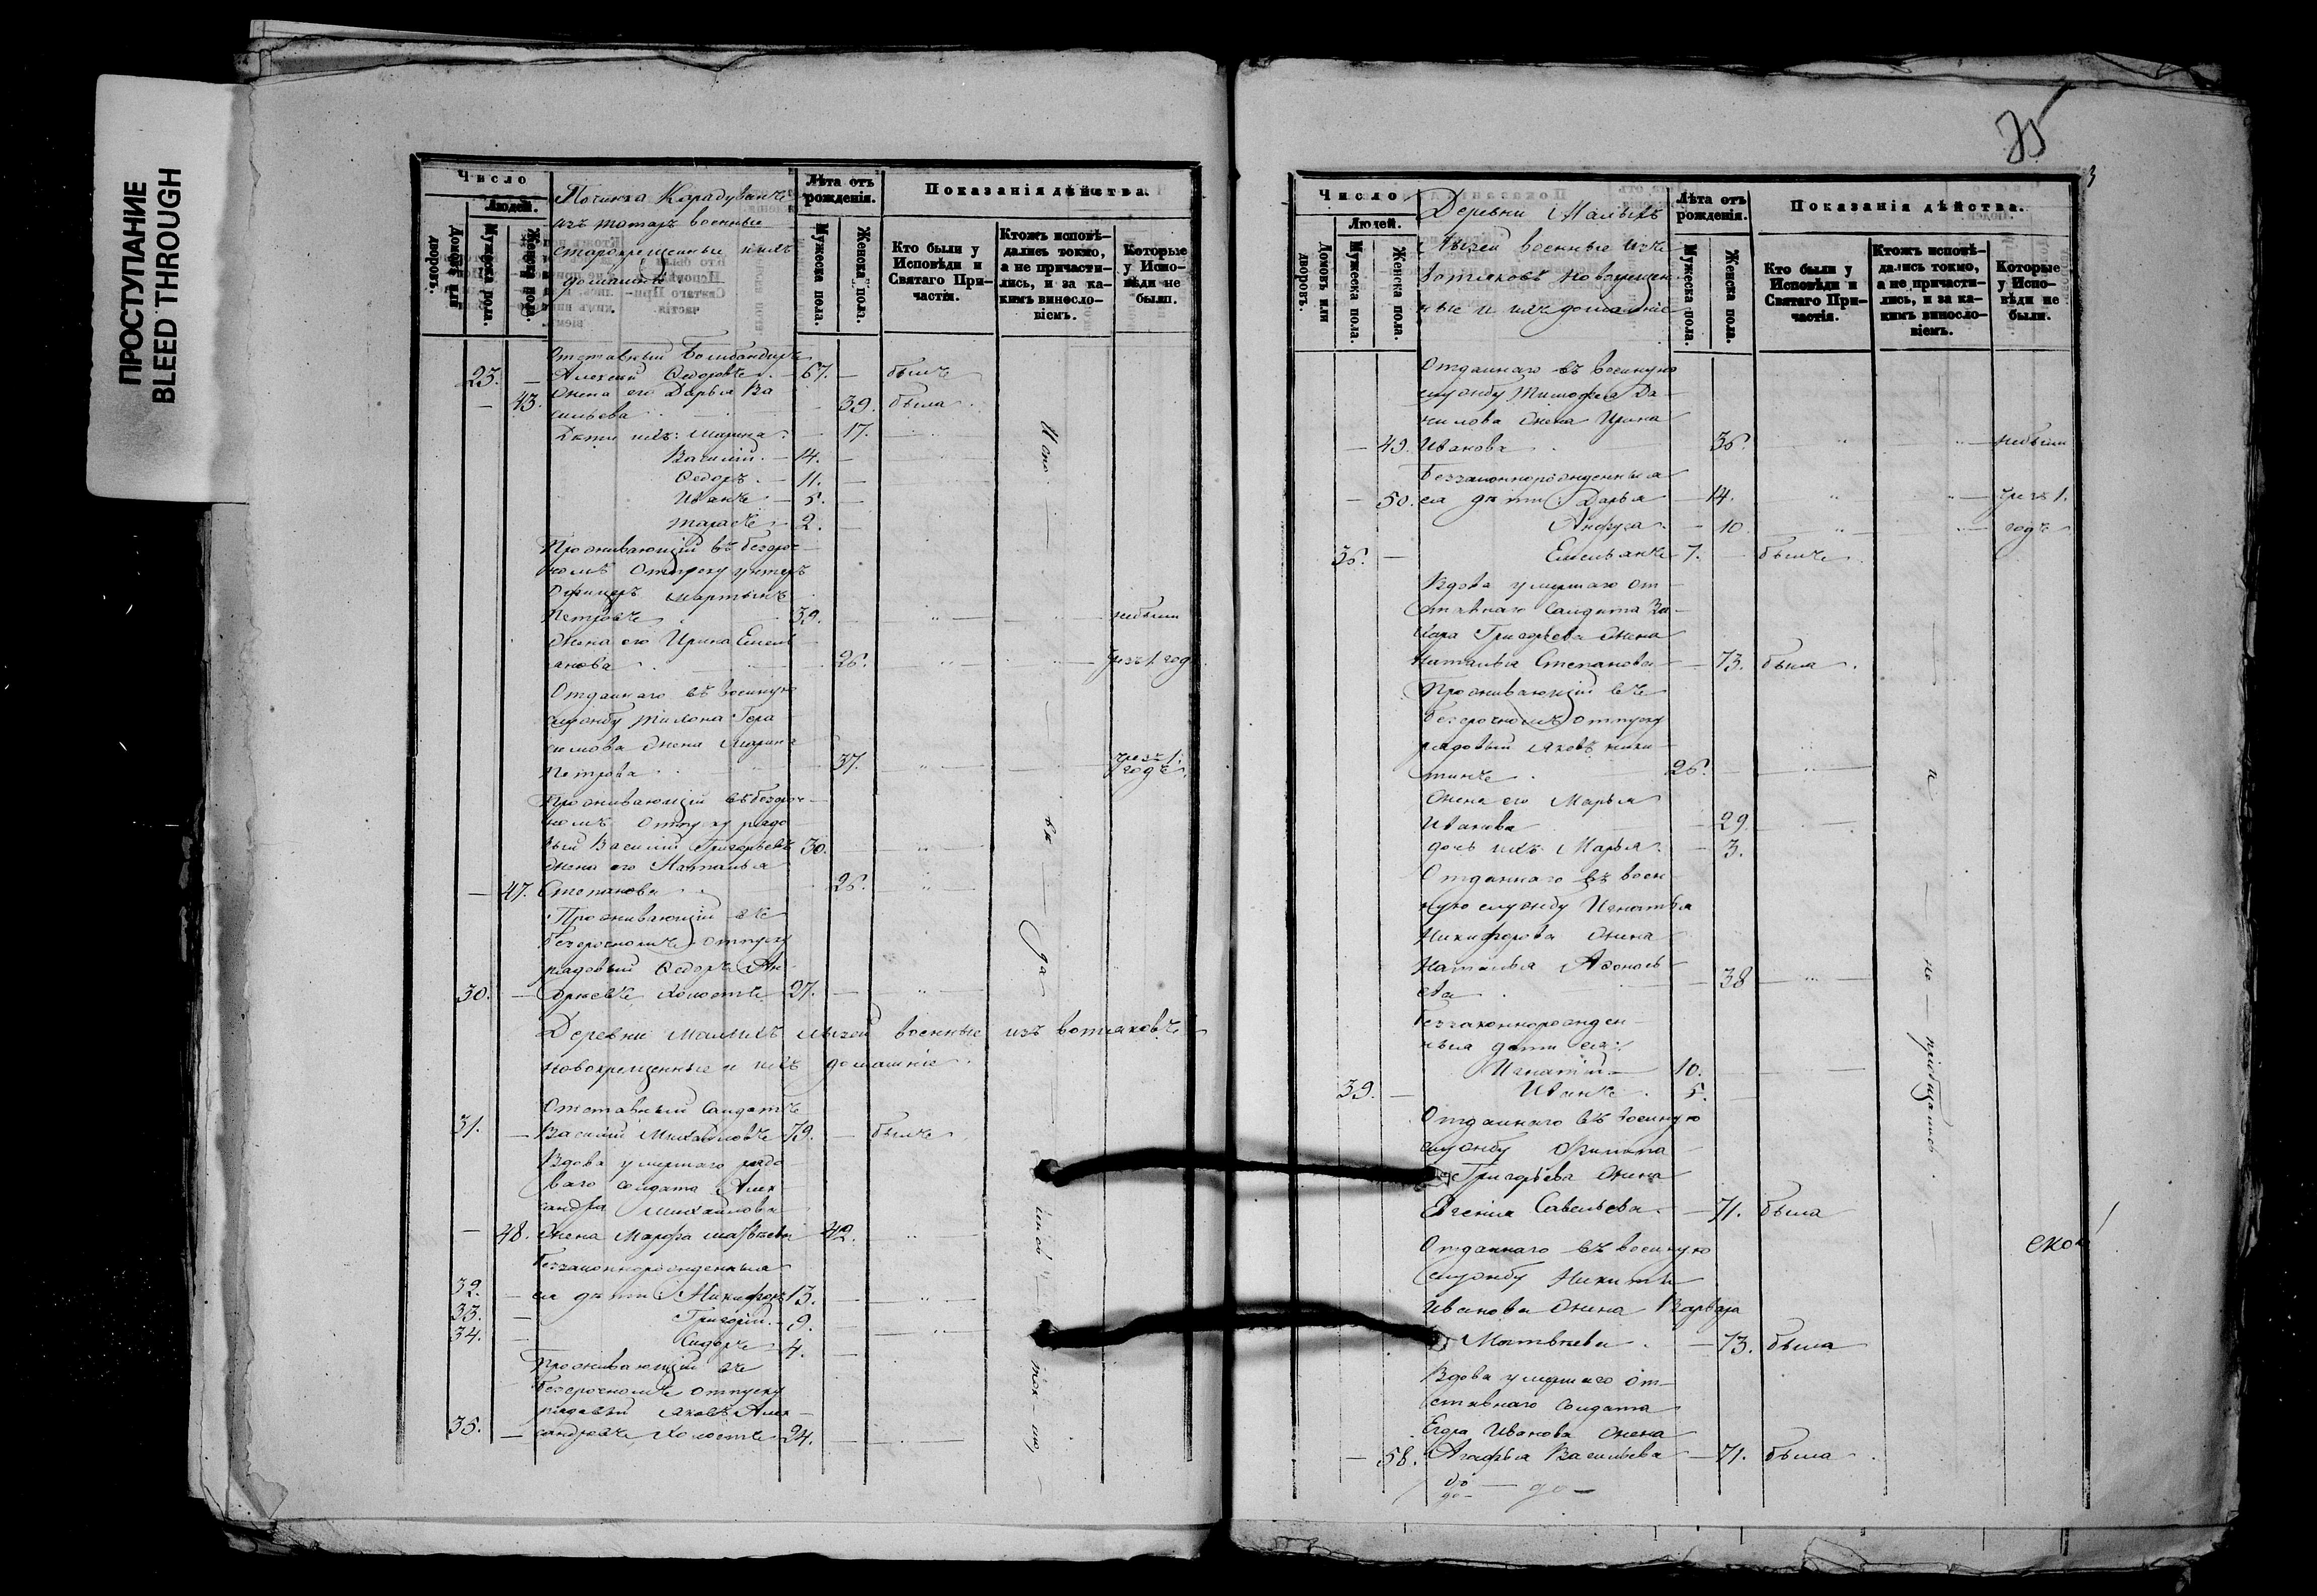 ПРОСТУПАНИЕ
BLEED THROUGH
Число
Людей.
Домовъ или дворовъ.
Мужеска пола.
Женска пола.
Починка Карадуванъ
изъ татаръ военные
старокрещенные и ихъ
домашніе
Лѣта отъ рожденія.
Мужеска пола.
Женска пола.
Показанія дѣйства.
Кто были у Исповѣди и Святаго Причастія.
Ктожъ исповѣдались токмо, а не причастились, и за какимъ винословіемъ.
Которые у Исповѣди не были.
Отставный бомбандиръ
23. — Алексей Ѳедоровъ. — 67. — былъ
Жена его Дарья Ва
— 43. сильева — 39. была.
Дети ихъ: Марина — 17.
Василій. — 14. —
Ѳедоръ. — 11. —
Иванъ — 5. —
Тарасъ — 2. —
Проживающій въ безсроч
номъ отпуску унтеръ
Офицеръ Мартынъ
Петровъ 39. — небыли
Жена его Ирина Емель
анова 26. чрезъ 1 годъ
Отданнаго въ военную
службу Тихона Гера
симова жена Марина
Петрова 37. чрезъ 1. годъ
Проживающій въ безсроч
номъ отпуску рядо
вый Василій Григорьевъ 30.
жена его Наталья
— 47. Степанова 26.
Проживающій въ
безсрочномъ отпуску
рядовый Ѳедоръ Ан
30. — дреевъ холостъ 27. —
Деревни Малыхъ Лызей военные изъ вотяковъ
новокрещенные и ихъ домашніе
Отставный Солдатъ
31. — Василій Михайловъ 79. — былъ
Вдова умершаго рядо
ваго солдата Алек
сандра Михайлова
— 48. жена Марфа Матвеева 42.
Беззаконнорожденныя
32. — ея дѣти: Никифоръ 13.
33. — Григорій. — 9.
34. — Сидоръ 4. —
Проживающій въ
безсрочномъ отпуску
рядовый Яковъ Алек
35. — сандровъ Холостъ 24.
35
Число
Людей.
Домовъ или дворовъ.
Мужеска пола.
Женска пола.
Деревни Малыхъ
Лызей военные изъ
вотяковъ новокрещен
ные и ихъ домашніе
Лѣта отъ рожденія.
Мужеска пола.
Женска пола.
Показанія дѣйства.
Кто были у Исповѣди и Святаго Причастія.
Ктожъ исповѣдались токмо, а не причастились, и за какимъ винословіемъ.
Которые у Исповѣди не были.
Отданнаго въ военную
службу Тимофея Да
нилова жена Ирина
— 49. Иванова 36. небыли
Беззаконнорожденныя
— 50. ея дѣти: Дарья — 14. чрезъ 1.
Анфуса — 10 годъ
36. — Емельянъ 7. — былъ
Вдова умершаго от
ставнаго Солдата За
хара Григорьева жена
Наталья Степанова — 73. была.
Проживающій въ
безсрочномъ отпуску
рядовый Яковъ Ники
тинъ. 26. —
Жена его Марья
Иванова — 29
дочь ихъ Марья. — 3.
Отданнаго въ воен
ную службу Игнатья
Никифорова жена
Наталья
ева 38
Беззаконнорожден
ныя дети ея:
Игнатій — 10.
39. — Иванъ. 5. —
Отданнаго въ военную
службу Филипа
Григорьева жена
Евгенія Савельева. — 71. была
Отданнаго въ военную
службу Никиты
Иванова жена Варвара
Матвеева. — 73. была
Вдова умершаго от
ставнаго солдата
Егора Иванова жена
— 58. Агафья Васильева — 71. была.